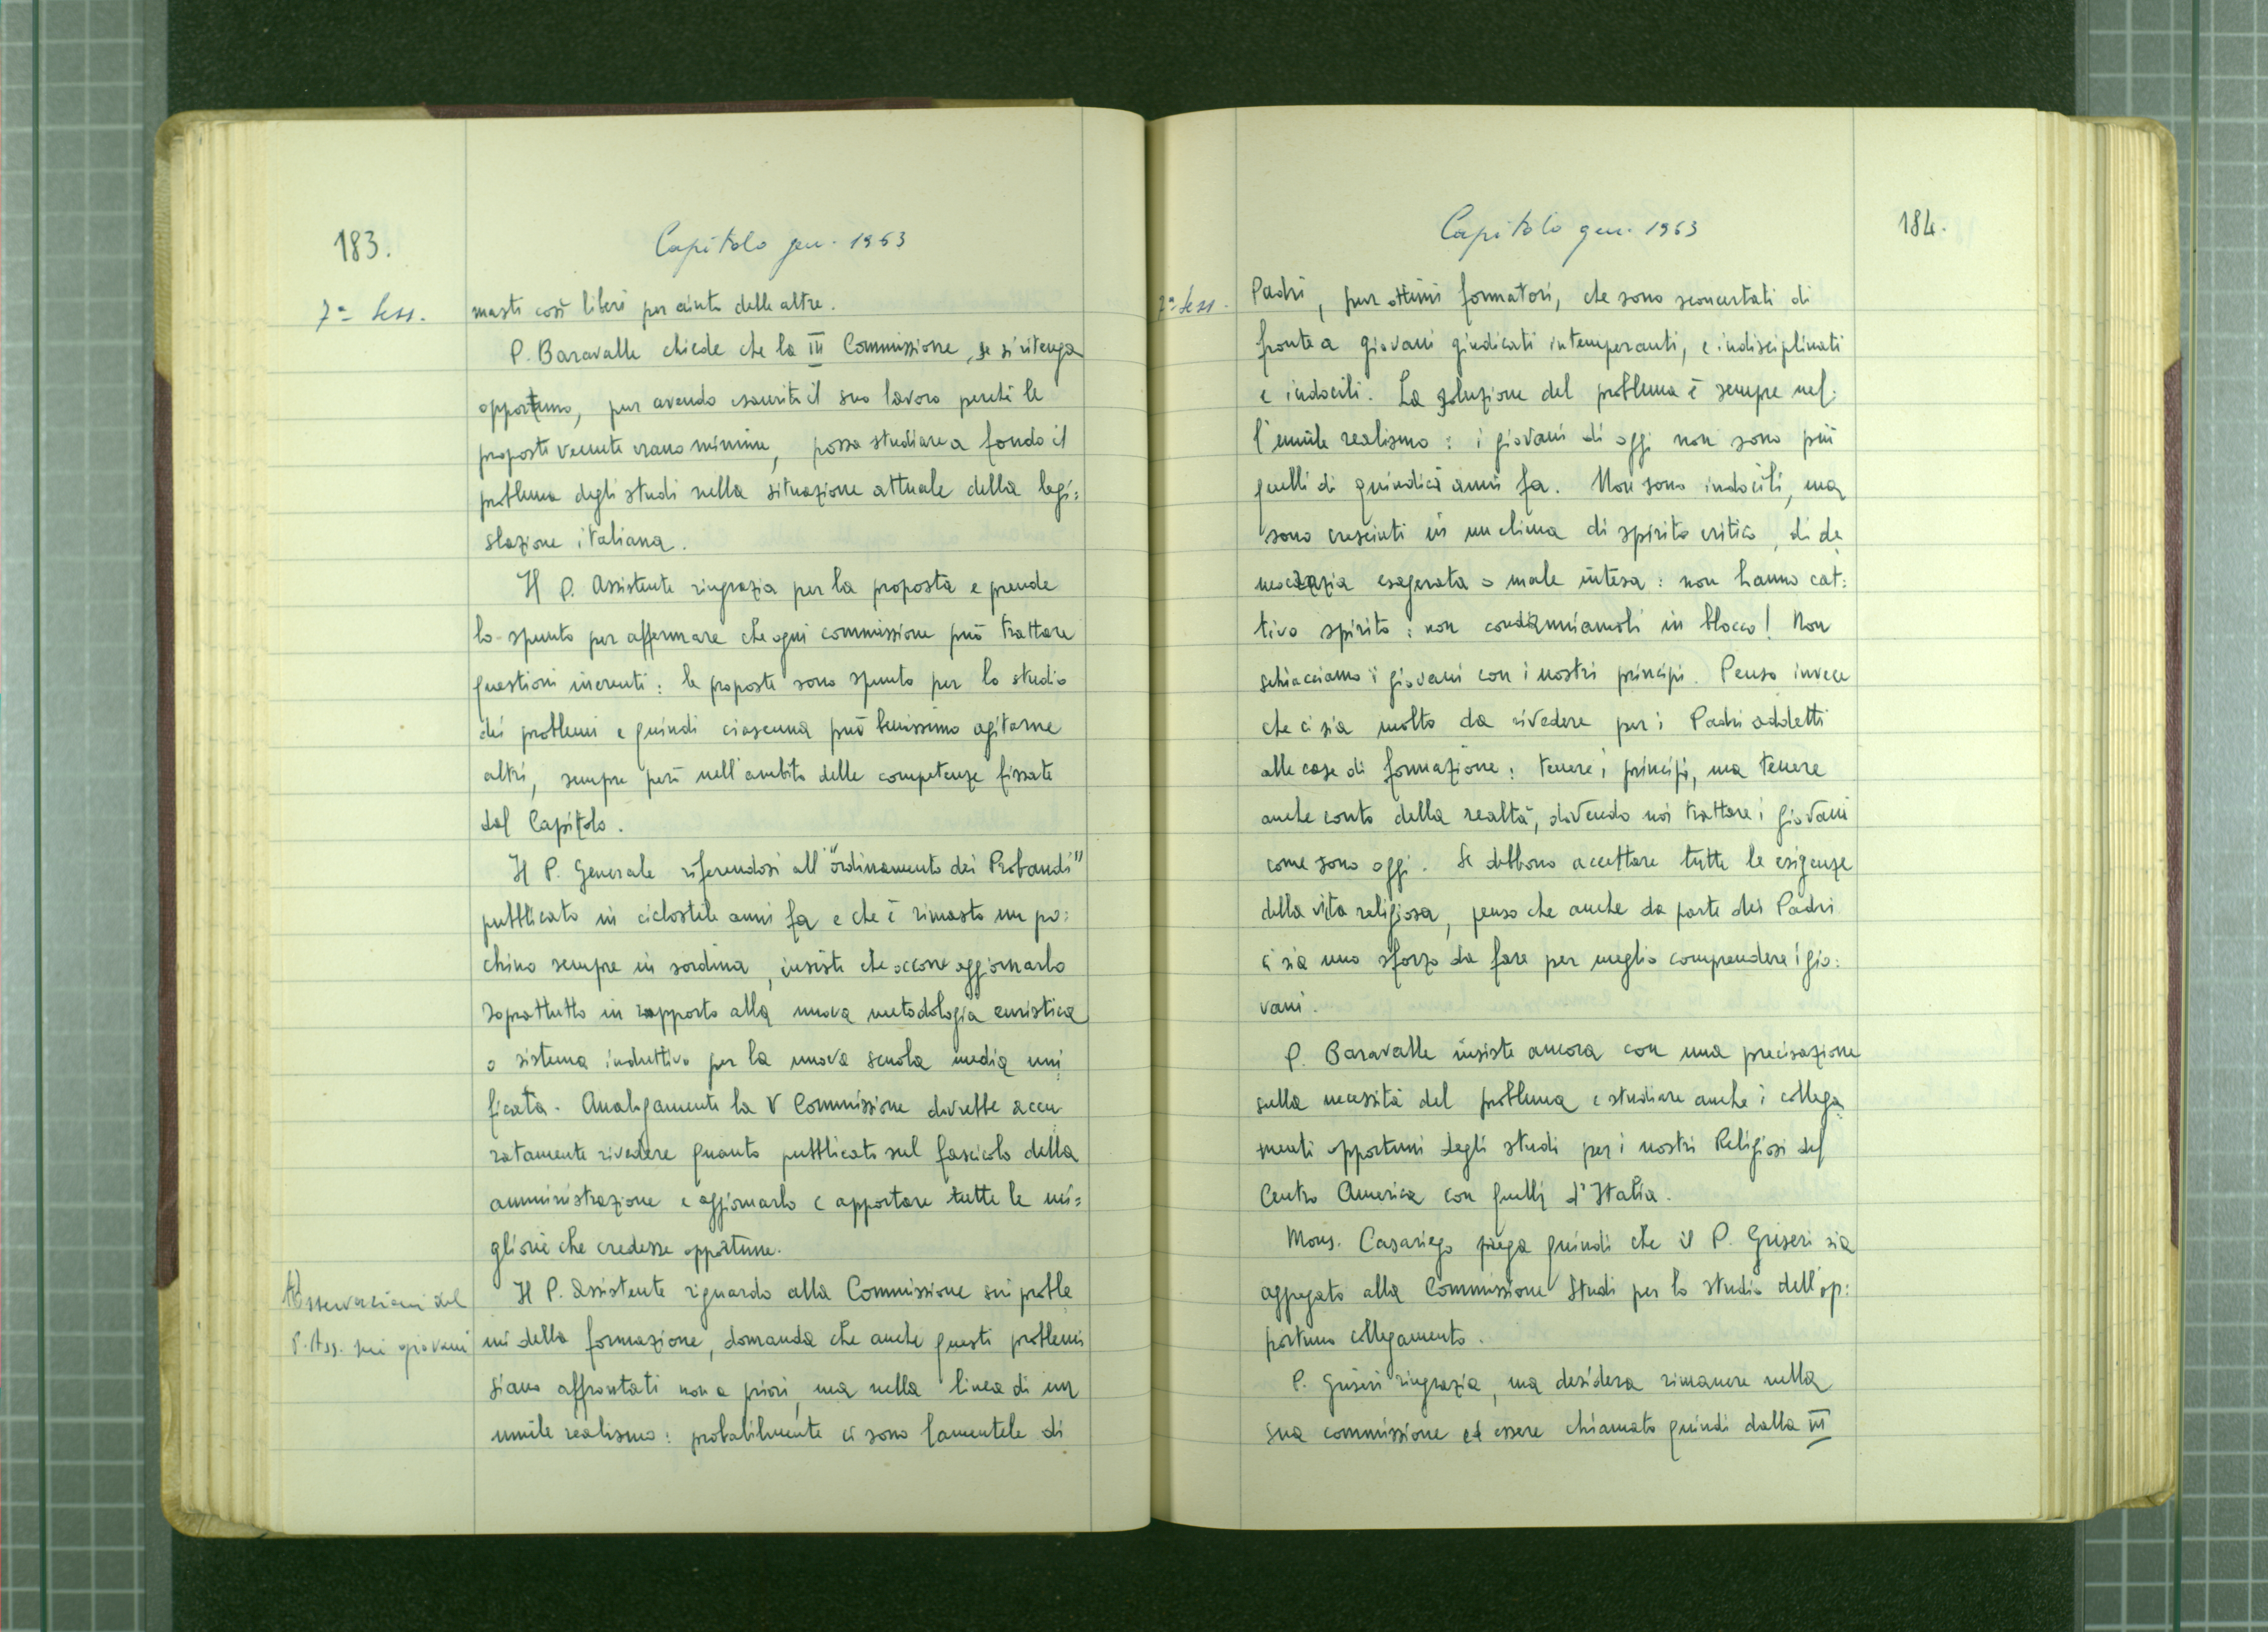 183.
Capitolo gen. 1963
7ª Sess.
masti così liberi per aiuto delle altre.
P. Baravalle chiede che la III Commissione, se si ritenga
opportuno, pur avendo esaurito il suo lavoro perché le
proposte venute erano minime, possa studiare a fondo il
problema degli studi nella situazione attuale della legi=
slazione italiana.
Il P. Assistente ringrazia per la proposta e prende
lo spunto per affermare che ogni commissione può trattare
questioni inerenti: le proposte sono spunto per lo studio
dei problemi e quindi ciascuna può benissimo agitarne
altri, sempre però nell'ambito delle competenze fissate
dal Capitolo.
Il P. Generale riferendosi all'"ordinamento dei Probandi"
pubblicato in ciclostile anni fa e che è rimasto un po=
chino sempre in sordina, insiste che occorre aggiornarlo
soprattutto in rapporto alla nuova metodologia euristica
o sistema induttivo per la nuova scuola media uni
ficata. Analogamente la V Commissione dovrebbe accu
ratamente rivedere quanto pubblicato sul fascicolo della
amministrazione e aggiornarlo e apportare tutte le mi=
gliorie che credesse opportune.
Osservazioni del
P. Ass. sui giovani
Il P. Assistente riguardo alla Commissione sui proble
mi della formazione, domanda che anche questi problemi
siano affrontati non a priori, ma nella linea di un
umile realismo: probabilmente ci sono lamentele di
Capitolo gen. 1963
184.
7ª Sess.
Padri, pur ottimi formatori, che sono sconcertati di
fronte a giovani giudicati intemperanti, e indisciplinati
e indocili. La soluzione del problema è sempre nel=
l'umile realismo: i giovani di oggi non sono più
quelli di quindici anni fa. Non sono indocili, ma
sono cresciuti in un clima di spirito critico, di de
mocrazia esagerata o male intesa: non hanno cat=
tivo spirito: non condanniamoli in blocco! Non
schiacciamo i giovani con i nostri principi. Penso invece
che ci sia molto da rivedere per i Padri addetti
alle case di formazione: tenere i principi, ma tenere
anche conto della realtà, dovendo noi trattare i giovani
come sono oggi. Se debbono accettare tutte le esigenze
della vita religiosa, penso che anche da parte dei Padri
ci sia uno sforzo da fare per meglio comprendere i gio=
vani.
P. Baravalle insiste ancora con una precisazione
sulla necessità del problema e studiare anche i collega
menti opportuni degli studi per i nostri Religiosi del
Centro America con quelli d'Italia.
Mons. Casariego prega quindi che il P. Griseri sia
aggregato alla Commissione Studi per lo studio dell'op=
portuno collegamento.
P. Griseri ringrazia, ma desidera rimanere nella
sua commissione ed essere chiamato quindi dalla III